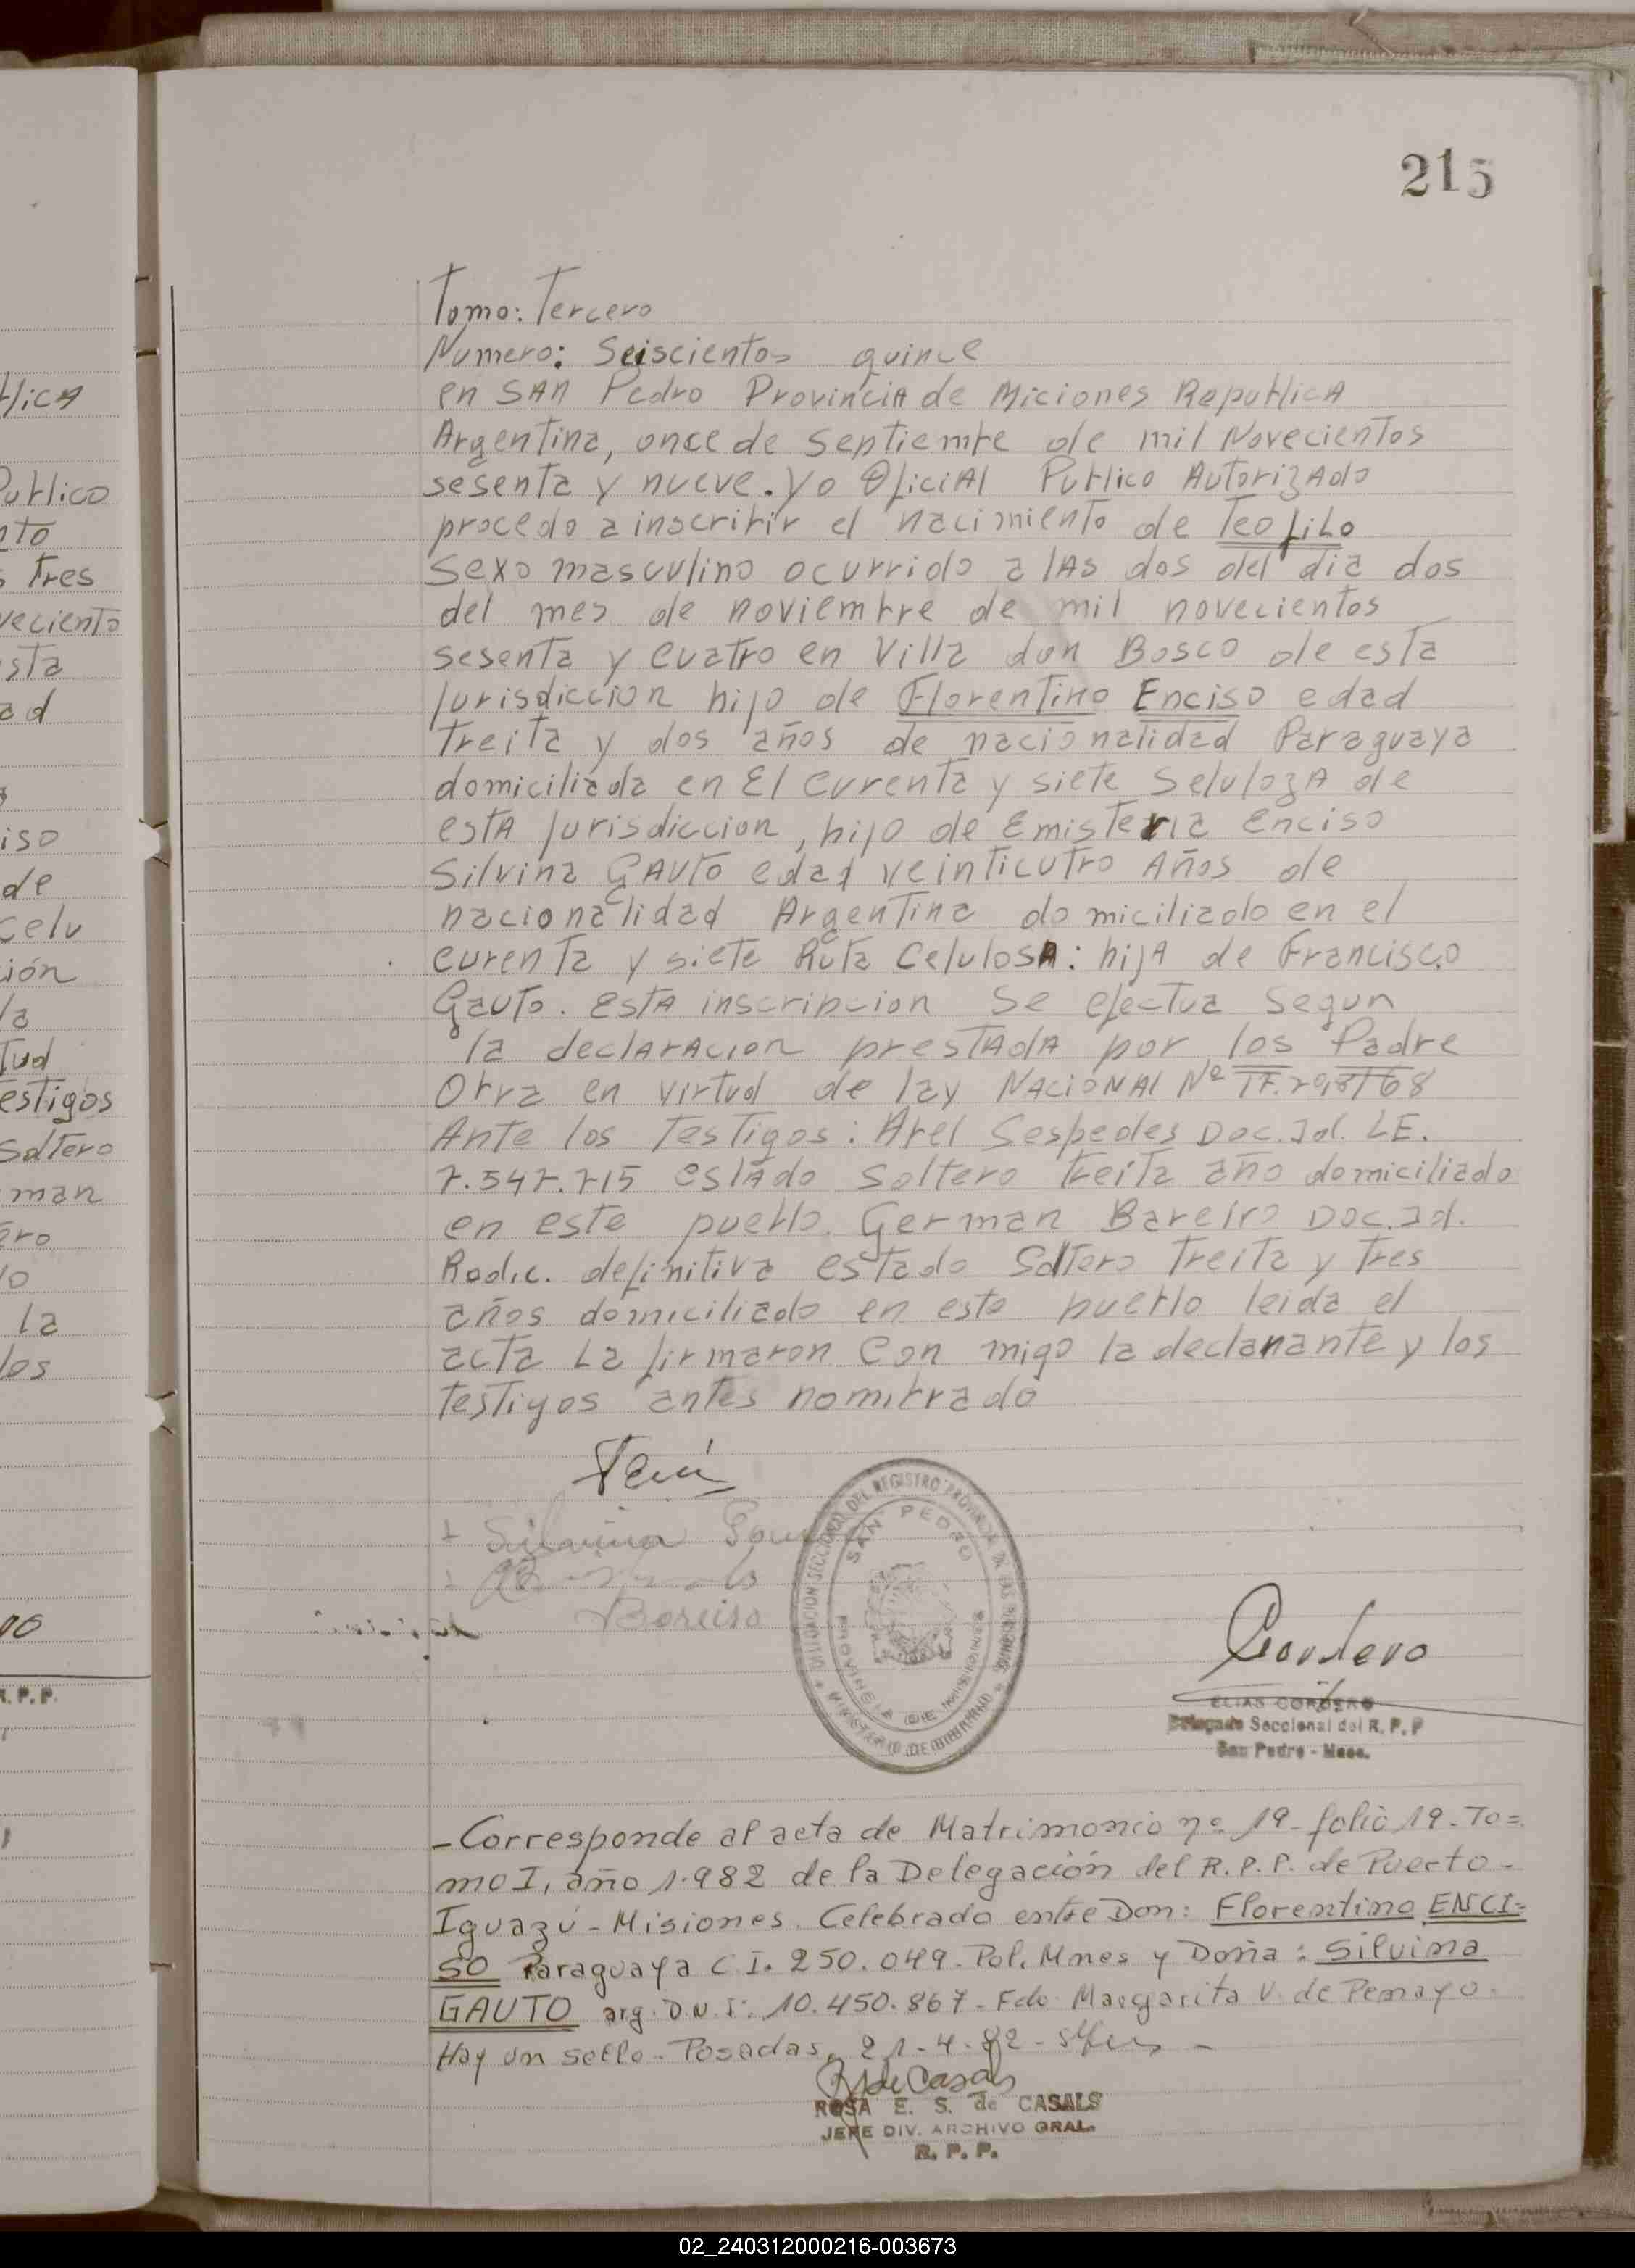 215
Tomo: Tercero
Numero: Seiscientos quince
en SAN Pedro Provincia de Miciones Republica
Argentina, once de septiembre de mil Novecientos
sesenta y nueve. Yo Oficial Publico Autorizado
procedo a inscribir el nacimiento de Teofilo
Sexo masculino ocurrido a las dos del dia dos
del mes de noviembre de mil novecientos
sesenta y cuatro en Villa don Bosco de esta
jurisdiccion hijo de Florentino Enciso edad
treita y dos años de nacionalidad Paraguaya
domiciliada en El curenta y siete Seluloza de
esta jurisdiccion, hijo de Emisteria Enciso
Silvina Gauto edad veinticutro Años de
nacionalidad Argentina domiciliado en el
curenta y siete Ruta Celulosa: hija de Francisco
Gauto. esta inscripcion se efectua segun
la declaracion prestada por los Padre
Obra en virtud de lay NACIONAL Nº
Ante los Testigos: Abel Sespedes Doc. Id. LE.
7.547.715 estado soltero treita año domiciliado
en este pueblo. German Bareiro Doc. Id.
Radic. definitiva estado Soltero treita y tres
años domiciliado en este pueblo leida el
acta La firmaron con migo la declarante y los
testigos antes nombrado
Silvina
Bareiro
SAN PEDRO
PROVINCIA DE MISIONES
Cordero
ELIAS CORDERO
Delegado Seccional del R. P. P
San Pedro - Mnes.
- Corresponde al acta de Matrimonio nº 19 - folio 19 - To=
mo I, año 1.982 de la Delegación del R. P. P. de Puerto -
Iguazú - Misiones. Celebrado entre Don: Florentino ENCI=
SO Paraguaya C. I. 250.049 - Pol. Mnes y Doña: Silvina
GAUTO arg. D.N.I: 10.450.867 - Fdo. Margarita V. de Pemayo.
Hay un sello - Posadas, 21-4-82 -
R S de Casals
ROSA E. S. de CASALS
JEFE DIV. ARCHIVO GRAL.
R. P. P.
02_240312000216-003673